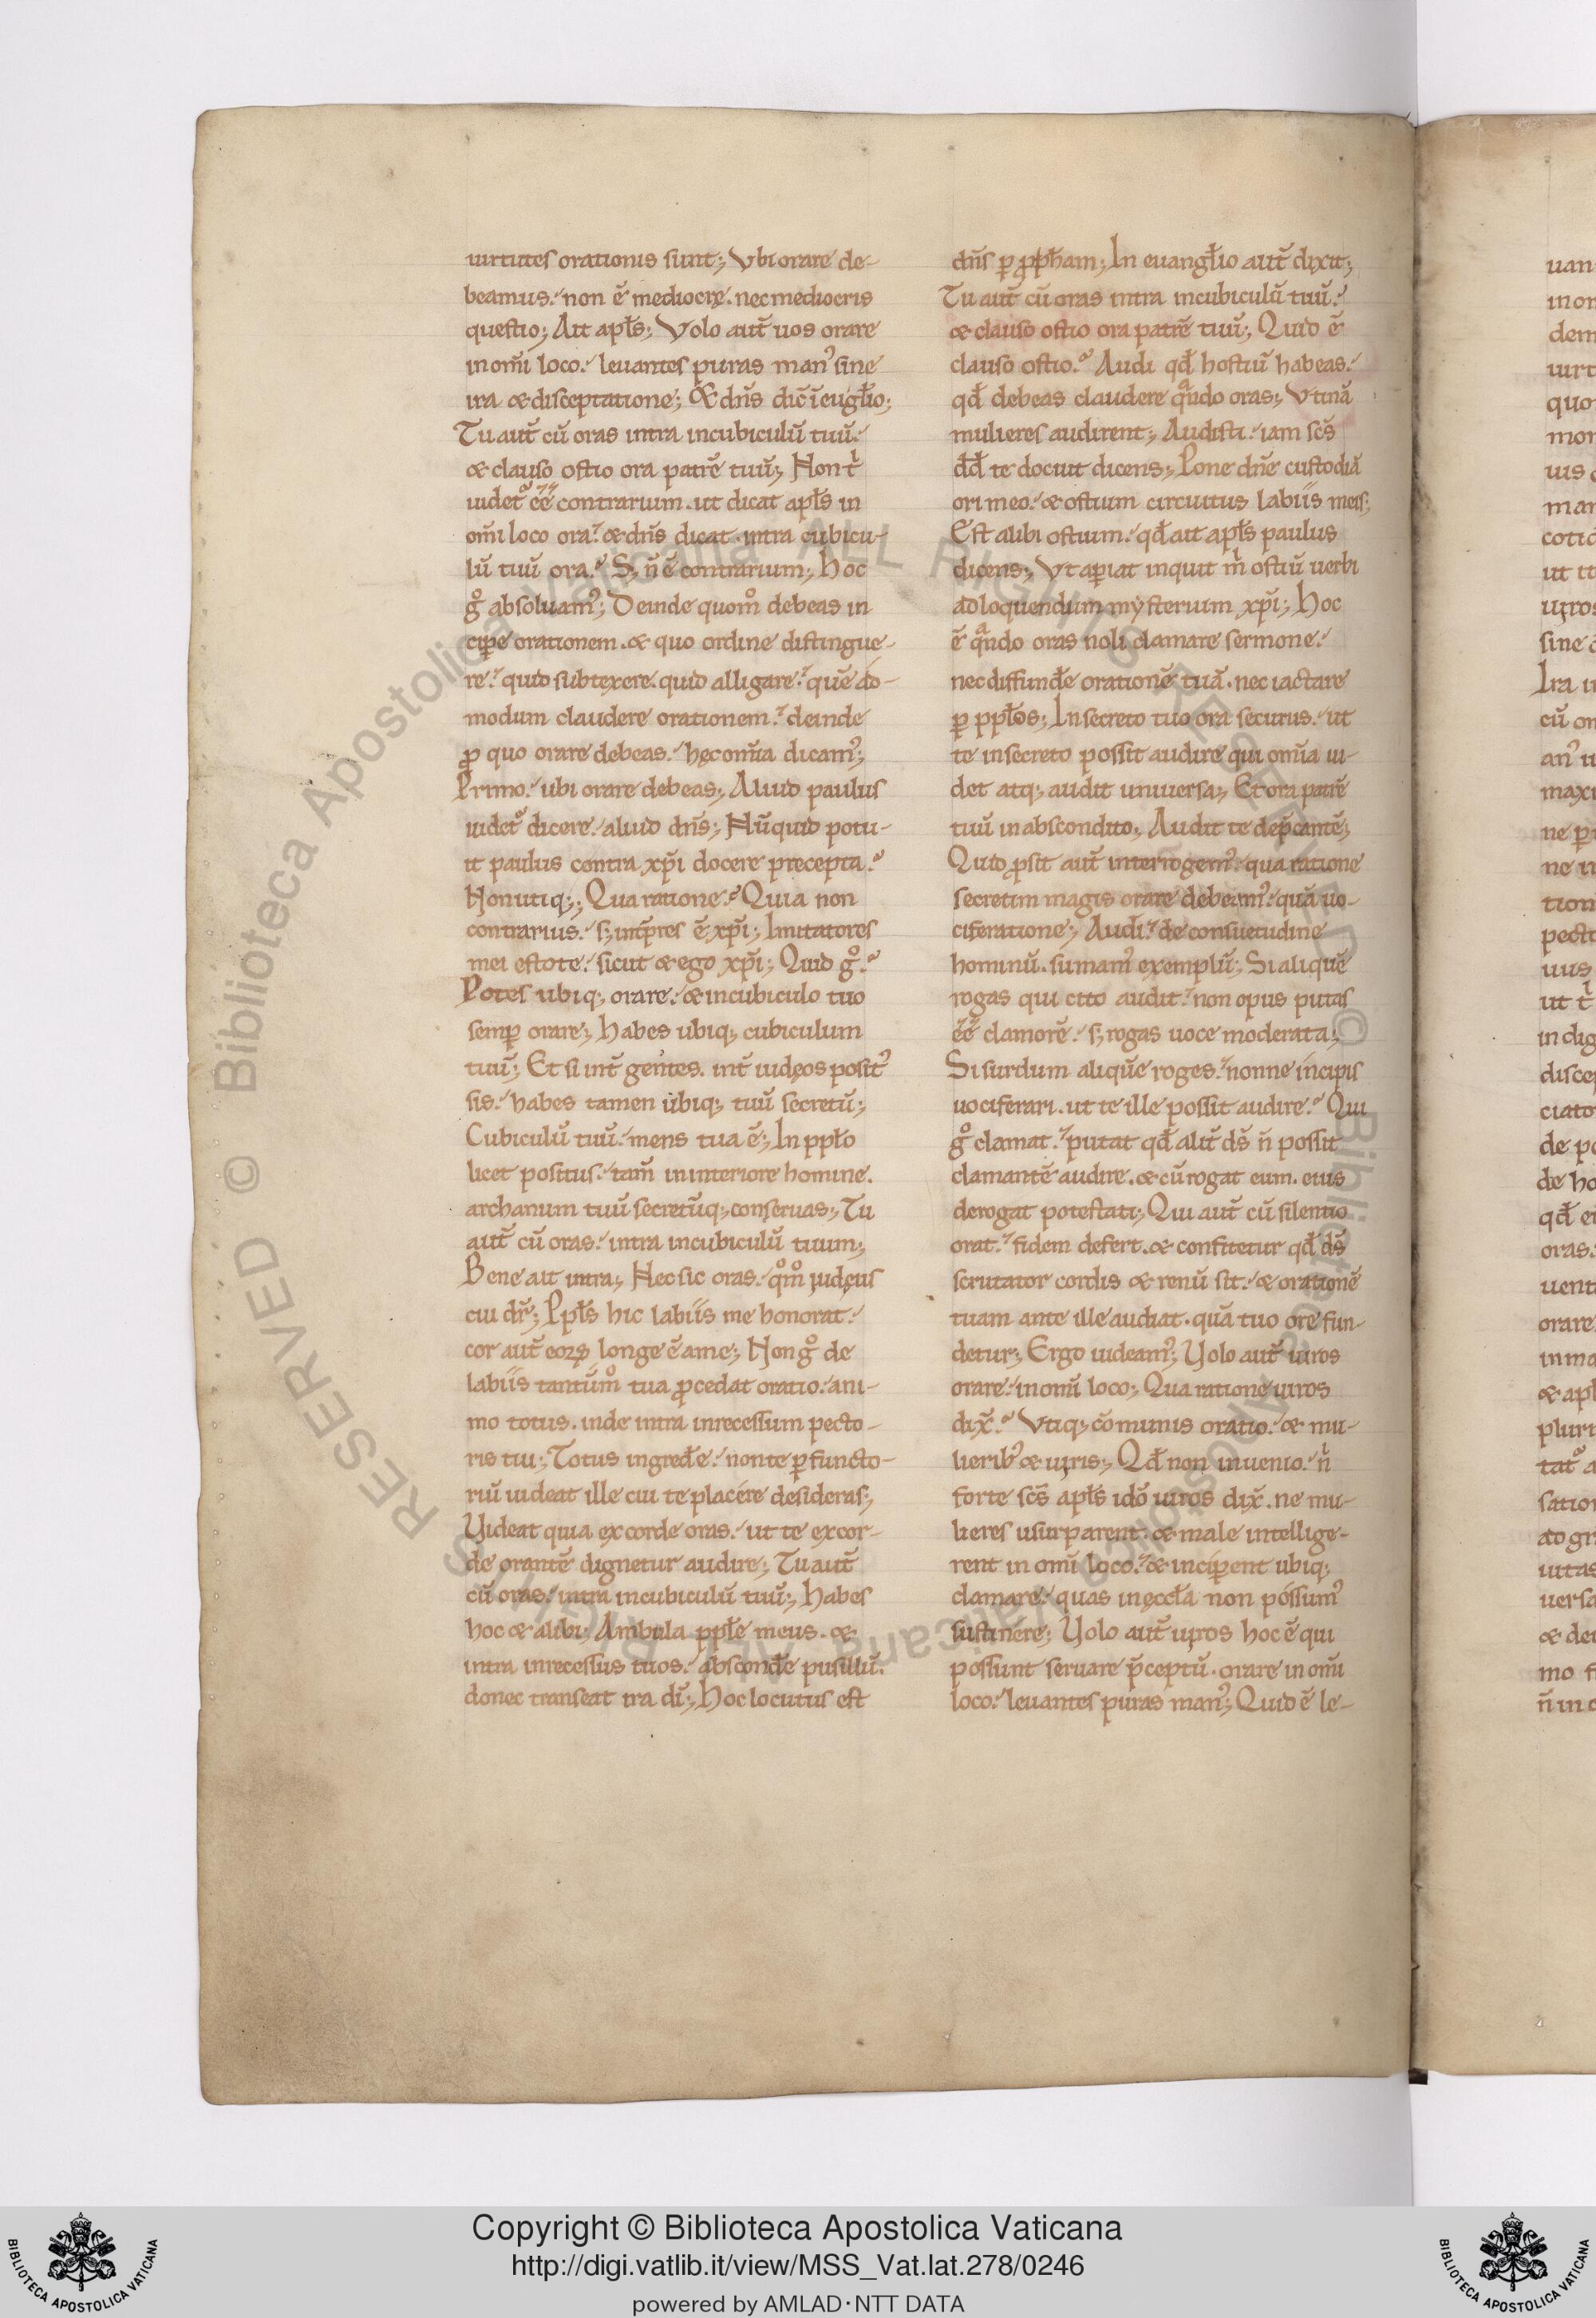 uirtutes orationis sunt; Vbi orare de-
beamus. non ē mediocrę. nec mediocris
questio; Ait apłs; Volo aut̄ uos orare
in om̄i loco. leuantes puras man' sine
ira & disceptatione; & dn̄s dic̄ ī eug̅lio;
Tu aut̄ cū oras intra incubiculū tuū.
& clauso ostio ora patrē tuū; Non t̓
uidet̾ ēē contrarium. ut dicat apłs in
om̄i loco ora. & dn̄s dicat. intra cubicu-
lū tuū ora. S; n̄ ē contrarium; hoc
g̊ absoluam'; Deinde quom̊ debeas in
cipe orationem. & quo ordine distingue-
re. quid subtexere. quid alligare. quē ad-
modum claudere orationem. deinde
ꝓ quo orare debeas. hęc om̄ia dicam';
Primo. ubi orare debeas; Aliud paulus
uidet̾ dicere. aliud dn̄s; Nūquid potu-
it paulus contra xp̄i docere precepta.
Non utiq;; Qua ratione. Quia non
contrarius. s; int̄pres ē xp̄i; Imitatores
mei estote. sicut & ego xp̄i; Quid g̊.
Potes ubiq; orare. & incubiculo tuo
semꝑ orare; habes ubiq; cubiculum
tuū; Et si int̄ gentes. int̄ iudęos posit'
sis. habes tamen ubiq; tuū secretū;
Cubiculū tuū. mens tua ē; In ppło
licet positus. tam̄ in interiore homine.
archanum tuū secretūq; conseruas; Tu
aut̄ cū oras. intra incubiculū tuum;
Bene ait intra; Nec sic oras. q̊m̊ iudęus
cui dr̄; Ppłs hic labiis me honorat.
cor aut̄ eoꝝ longe ē ame; Non g̊ de
labiis tantūm̊ tua ꝓcedat oratio. ani-
mo totus. inde intra inrecessum pecto-
ris tui; Totus ingred̄e. non te ꝑfuncto-
riū uideat ille cui te placere desideras;
Uideat quia ex corde oras. ut te excor-
de orantē dignetur audire; Tu aut̄
cū oras. intra incubiculū tuū; habes
hoc & alibi; Ambula ppłe meus. &
intra inrecessus tuos. abscond̄e pusillū.
donec transeat ira dī; Hoc locutus est
dn̄s ꝑ ꝓpħam; In euang̅lio aut̄ dixit;
Tu aut̄ cū oras intra incubiculū tuū.
& clauso ostio ora patrē tuū; Quid ē
clauso ostio. Audi qđ hostiū habeas.
qđ debeas claudere qᵃndo oras; Vtinā
mulieres audirent; Audisti. iam sc̄s
dđ te docuit dicens; Pone dn̄e custodiā
ori meo. & ostium circuitus labiis meis;
Est alibi ostium. qđ ait apłs paulus
dicens; Vt aꝑiat inquit m̓ ostiū uerbi
ad loquendum mysterium xp̄i; Hoc
ē qᵃndo oras noli clamare sermone.
nec diffund̄e orationē tuā. nec iactare
ꝑ ppłos; In secreto tuo ora securus. ut
te insecreto possit audire qui om̄ia ui-
det atq; audit uniuersa; Et ora patrē
tuū in abscondito; Audit te dep̄cantē;
Quid ꝓsit aut̄ interrogem'. qua ratione
secretim magis orare debeam'. quā uo-
ciferatione; Audi. de consuetudine
hominū. sumam' exemplū; Si aliquē
rogas qui cito audit. non opus putas
ēē clamorē. s; rogas uoce moderata;
Si surdum aliquē roges. nonne incipis
uociferari. ut te ille possit audire. Qui
g̊ clamat. putat qđ alit̄ ds̄ n̄ possit
clamantē audire. & cū rogat eum. eius
derogat potestati; Qui aut̄ cū silentio
orat. fidem defert. & confitetur qđ ds̄
scrutator cordis & renū sit. & orationē
tuam ante ille audiat. quā tuo ore fun-
detur; Ergo uideam'; Uolo aut̄ uiros
orare. in om̄i loco; Qua ratione uiros
dix̄. Vtiq; cōmunis oratio. & mu-
lierib' & uiris; Qđ non inuenio. n̓
forte sc̄s apłs idō uiros dix̄. ne mu-
lieres usurparent. & male intellige-
rent in om̄i loco. & inciꝑent ubiq;
clamare. quas inęccła non possum'
sustinere; Uolo aut̄ uiros hoc ē qui
possunt seruare p̄ceptū. orare in om̄i
loco. leuantes puras man'; Quid ē le-
Copyright © Biblioteca Apostolica Vaticana
http://digi.vatlib.it/view/MSS_Vat.lat.278/0246
powered by AMLAD·NTT DATA